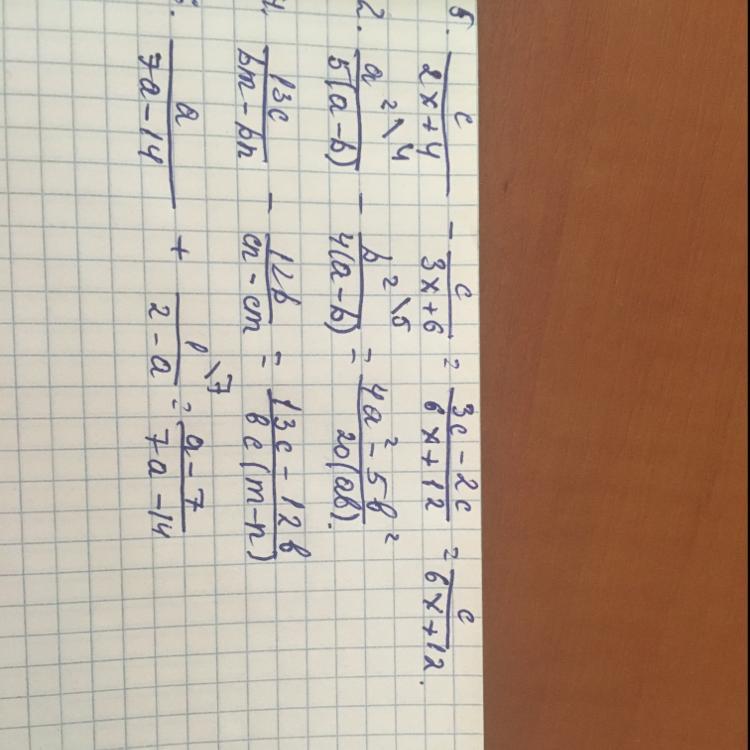 б. c/(2x+4) - c/(3x+6) = (3c-2c)/(6x+12) = c/(6x+12).
2. a²\4/(5(a-b)) - b²\5/(4(a-b)) = (4a²-5b²)/(20(ab)).
13c/(bm-bn) - 12b/(cn-cm) = (13c-12b)/(bc(m-n))
a/(7a-14) + 1\7/(2-a) = (a-7)/(7a-14)